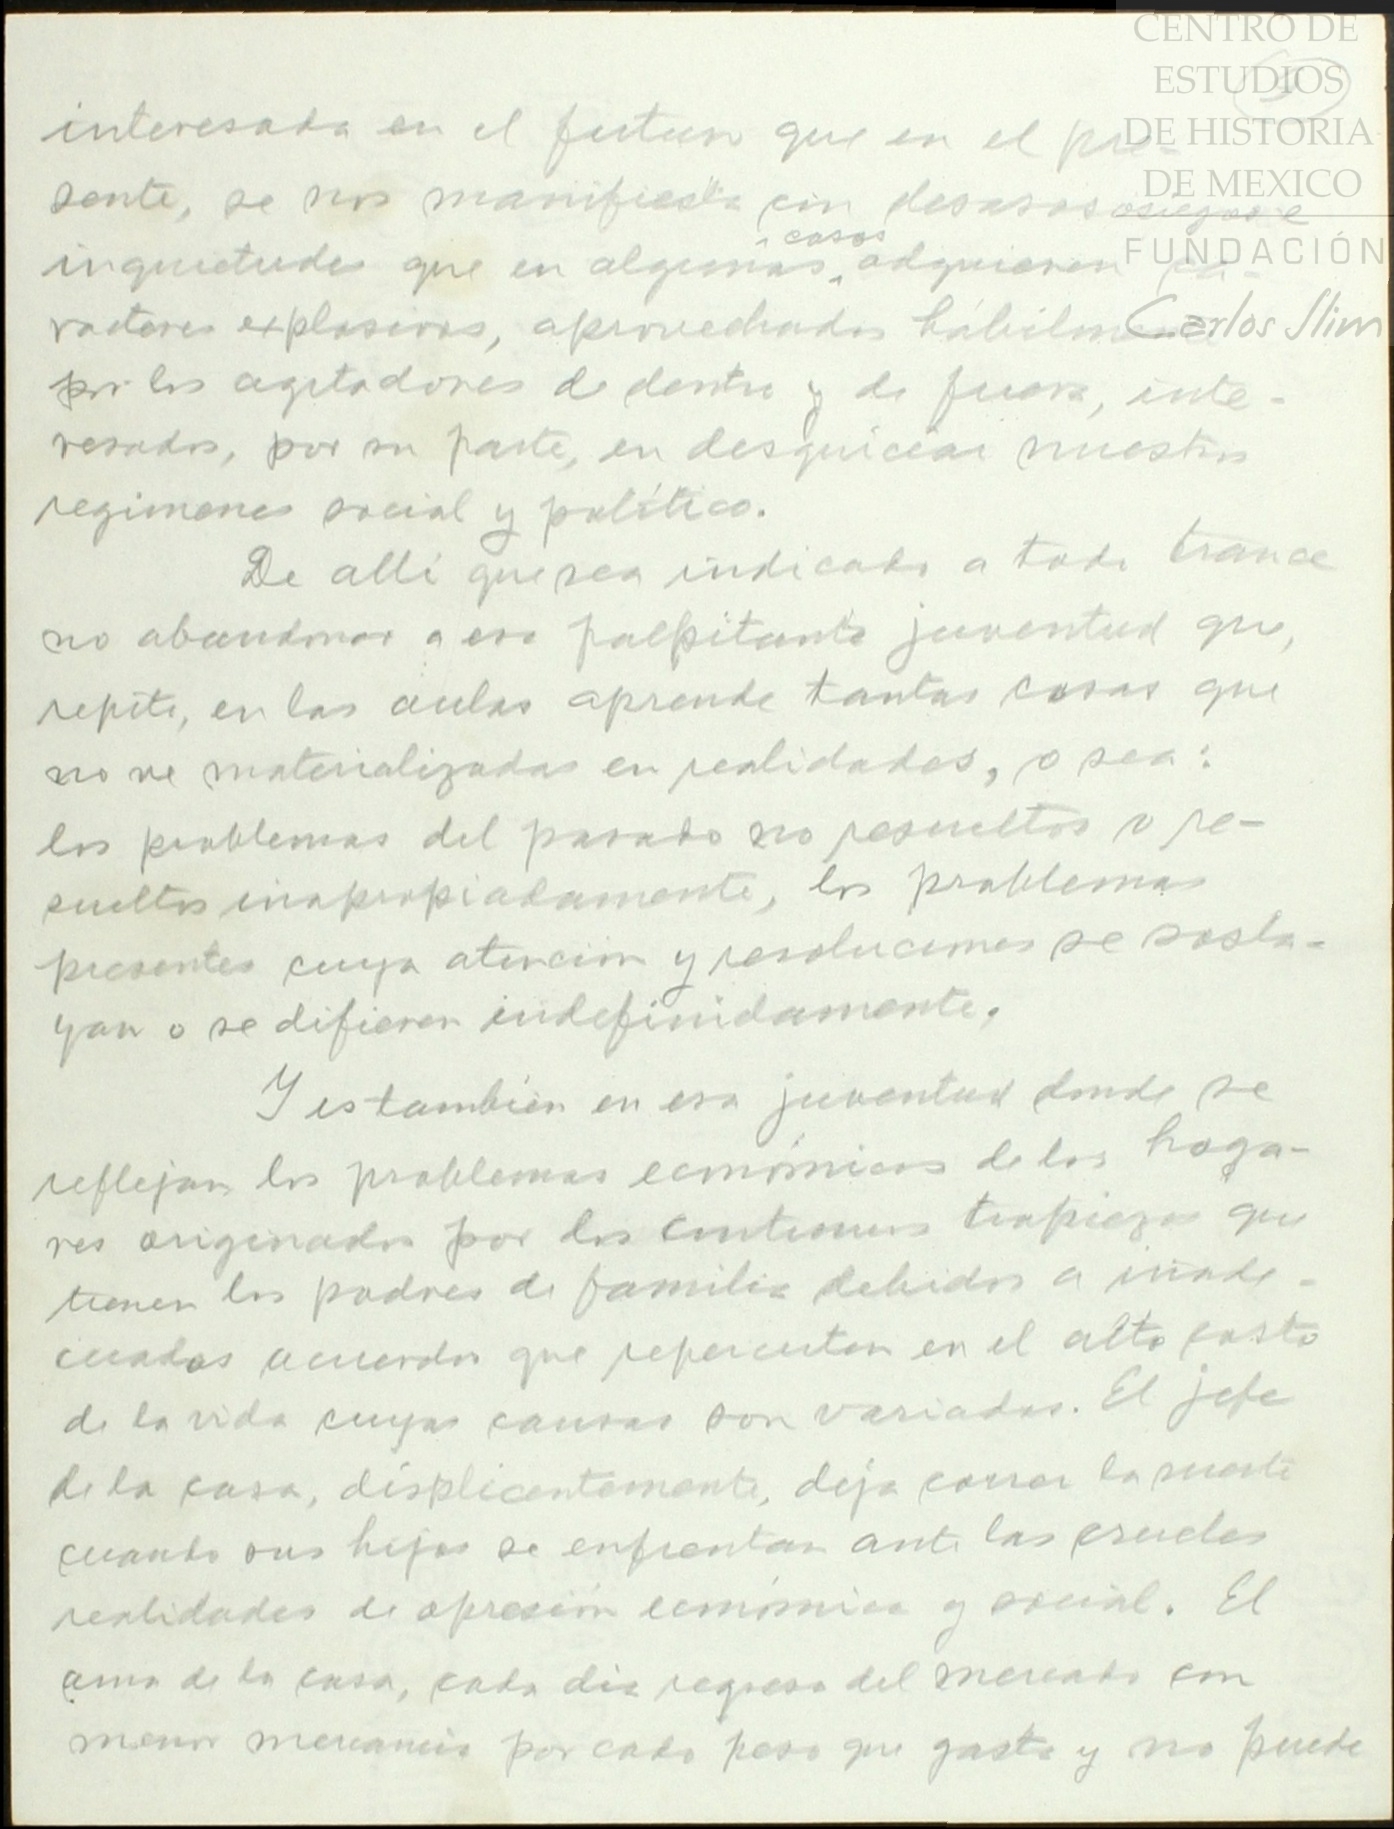 CENTRO DE
ESTUDIOS
DE HISTORIA
DE MEXICO
FUNDACIÓN
Carlos Slim
interesada en el futuro que en el pre-
sente, se nos manifiesta con desasosiegos e
casos
inquietudes que en algunos adquieren ca-
racteres explosivos, aprovechados hábilmente
por los agitadores de dentro y de fuera, inte-
resados, por su parte, en desquiciar nuestros
regimenes social y político.
De allí que sea indicado a todo trance
no abandonar a esa palpitante juventud que,
repito, en las aulas aprende tantas cosas que
no ve materializadas en realidades, o sea:
los problemas del pasado no resueltos o re-
sueltos inapropiadamente, los problemas
presentes cuya atención y resoluciones se sosla-
yan o se difieren indefinidamente.
Y es también en esa juventud donde se
reflejan los problemas económicos de los hoga-
res originados por los continuos tropiezos que
tienen los padres de familia debidos a inade-
cuados acuerdos que repercuten en el alto costo
de la vida cuyas causas son variadas. El jefe
de la casa, displicentemente, deja correr la suerte
cuando sus hijos se enfrentan ante las crueles
realidades de opresión económica y social. El
ama de la casa, cada día regresa del mercado con
menor mercancía por cada peso que gasta y no puede